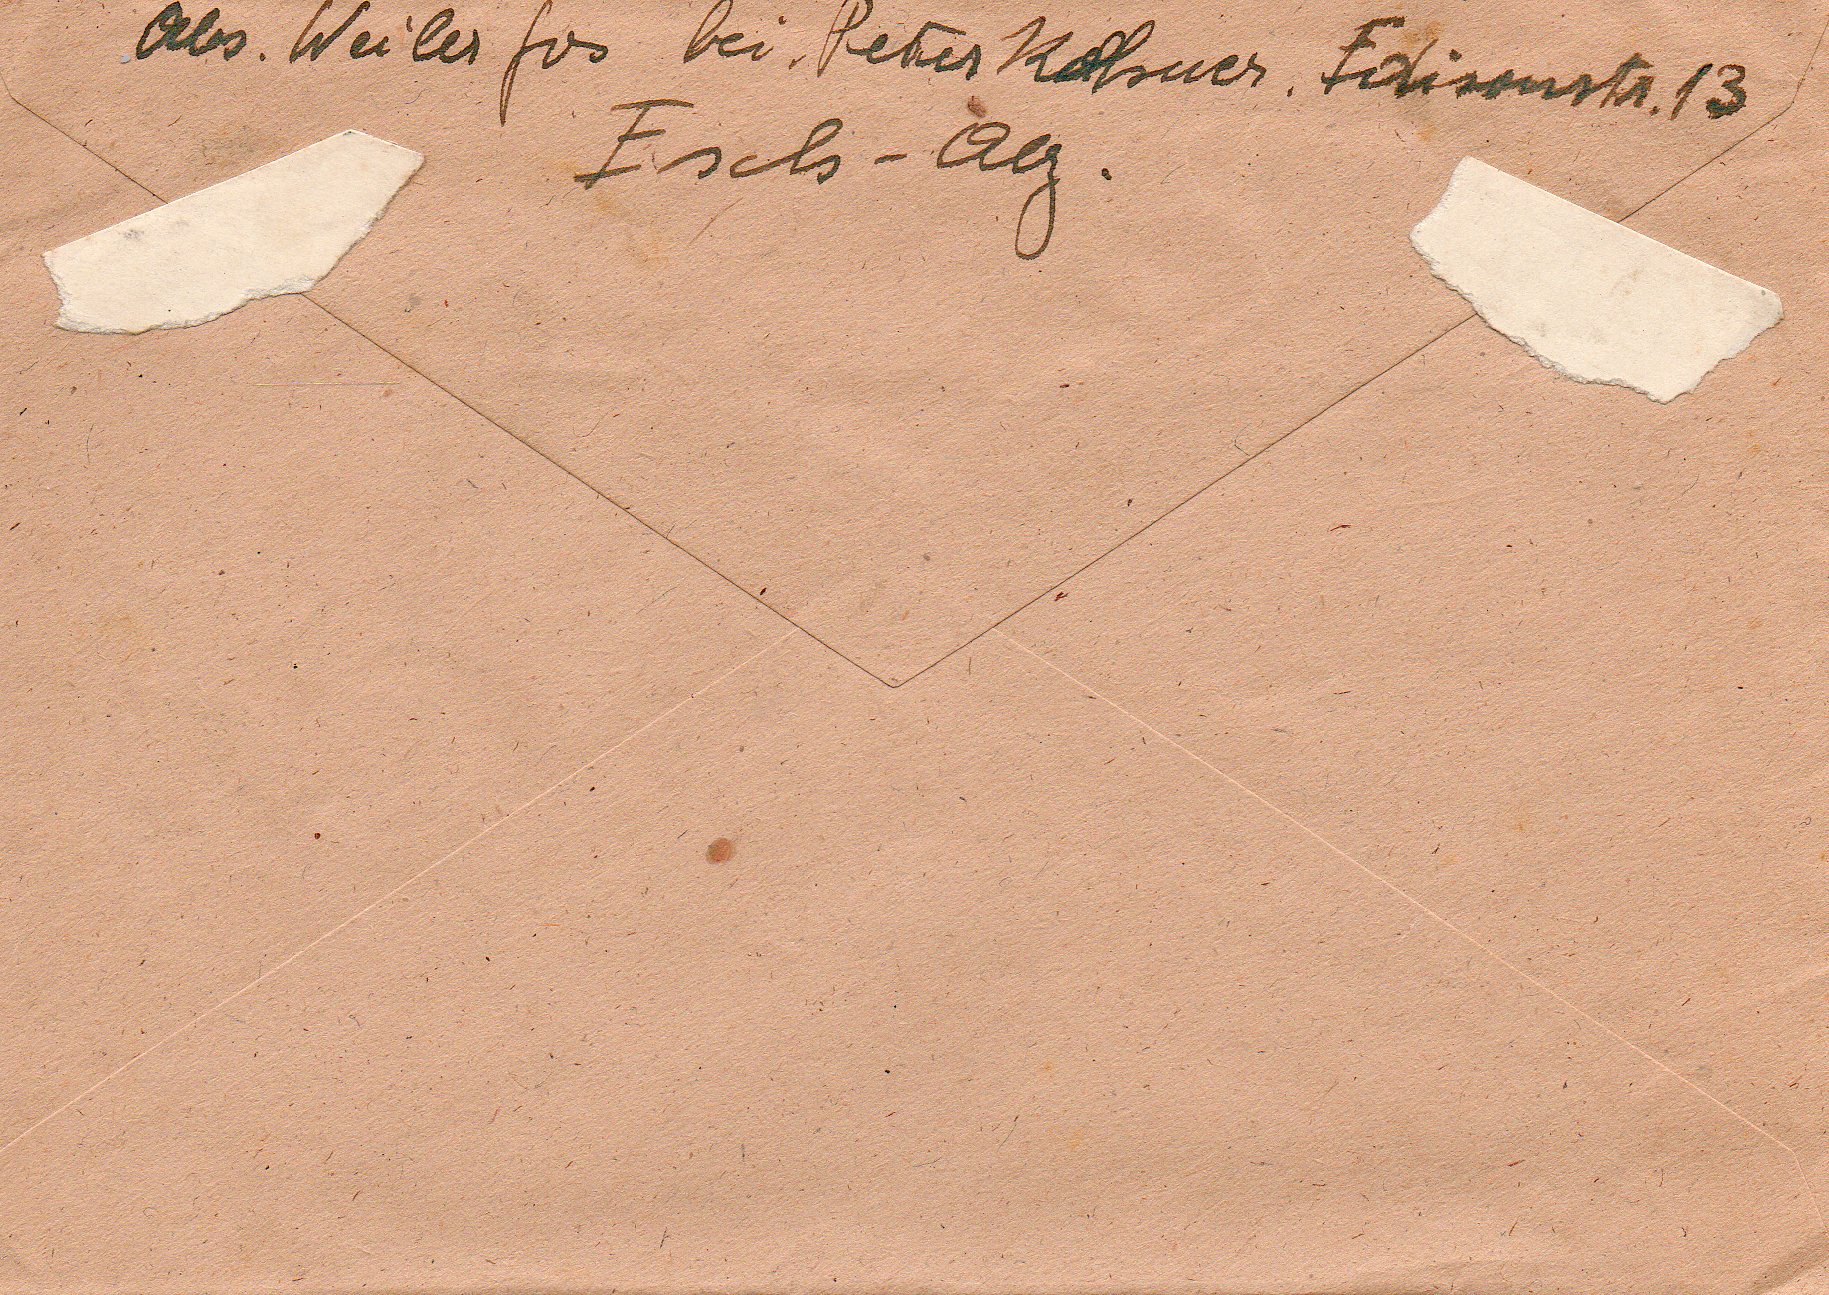 Abs. Weiler Jos bei. Peter Edisonstr. 13
Esch - Alz.